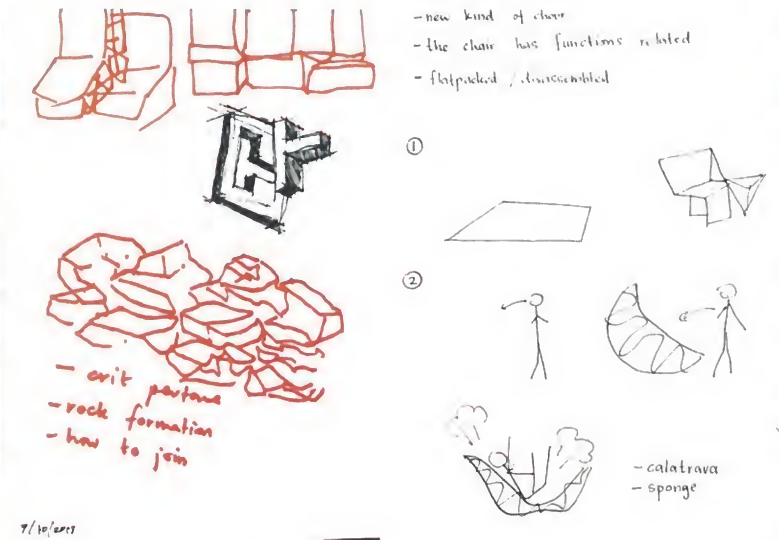 - new kind of chair
- the chair has functions related
- flatpacked / disassembled
①
②
- rock formation
- how to join
- calatrava
- sponge